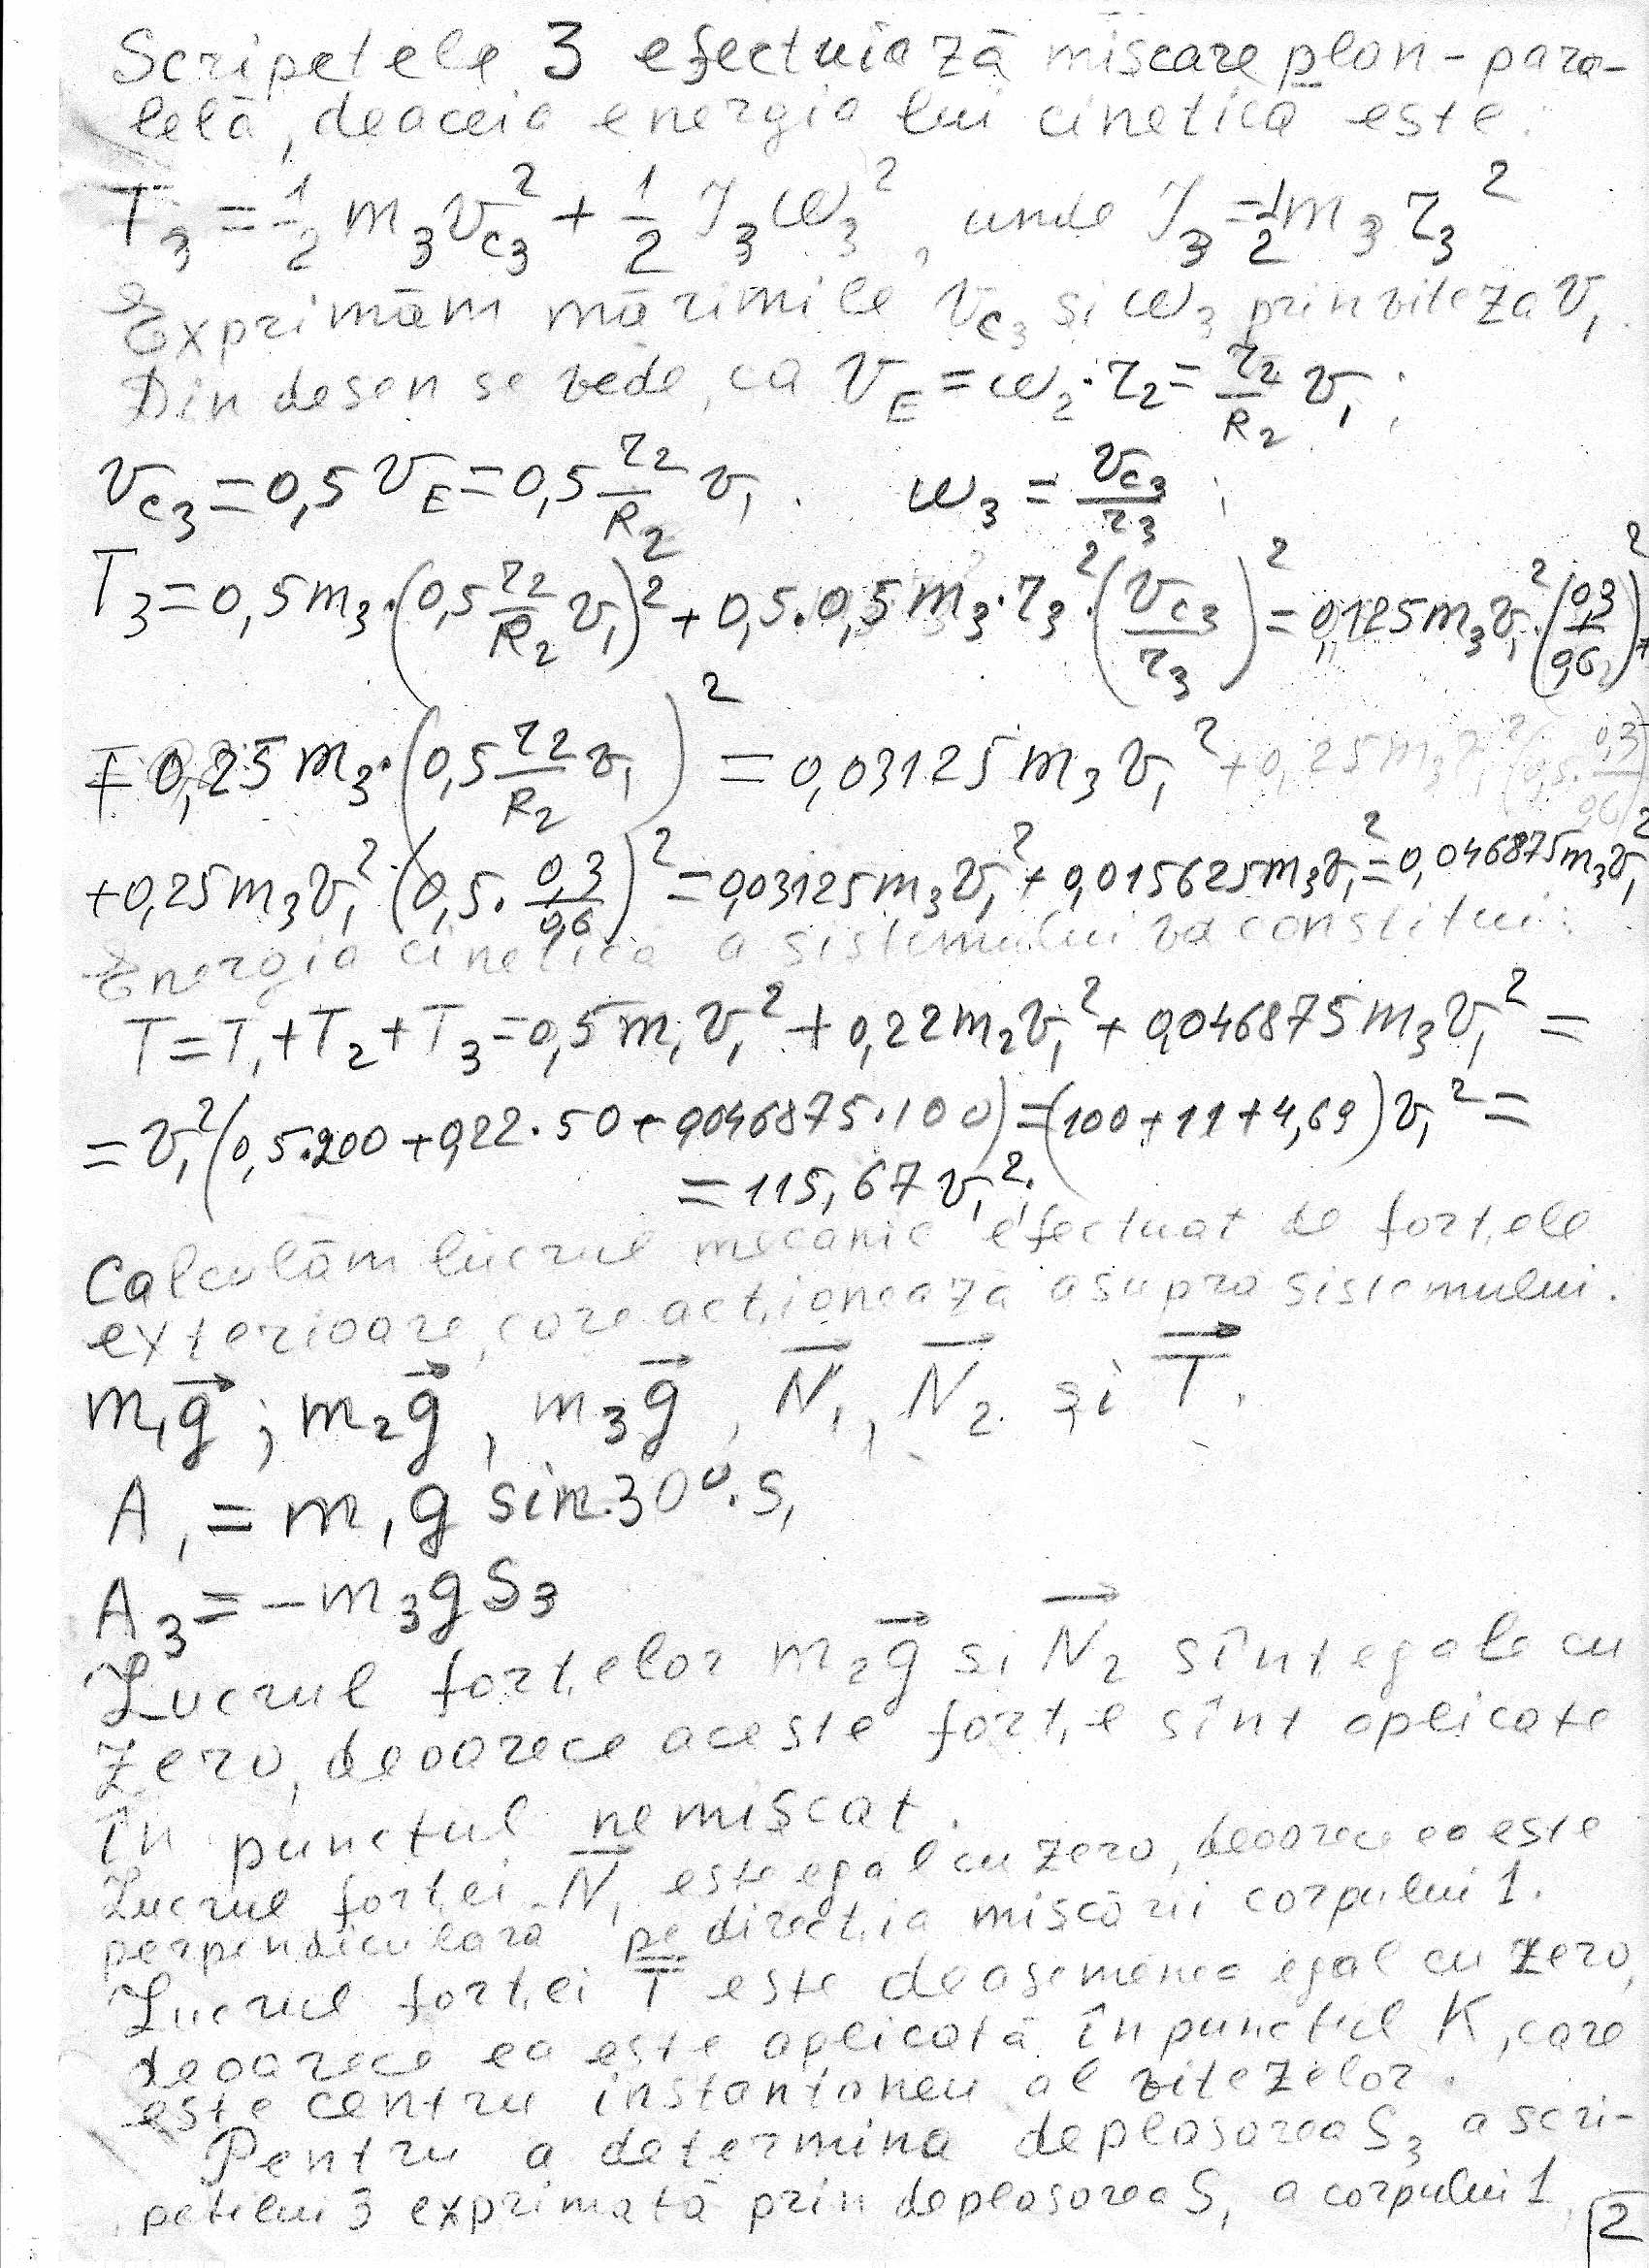 Scripetele 3 efectuiază mișcare plan-para-
lelă, deaceia energia lui cinetică este:
T₃ = 1/2 m₃ v_C₃² + 1/2 J₃ ω₃², unde J₃ = 1/2 m₃ r₃²
Exprimăm mărimile v_C₃ și ω₃ prin viteza v₁.
Din desen se vede, ca v_E = ω₂·r₂ = r₂/R₂ v₁;
v_C₃ = 0,5 v_E = 0,5 r₂/R₂ v₁. ω₃ = v_C₃/r₃;
T₃ = 0,5 m₃·(0,5 r₂/R₂ v₁)² + 0,5·0,5 m₃·r₃²·(v_C₃/r₃)² = 0,125 m₃ v₁²·(0,3/0,6)² +
+ 0,25 m₃·(0,5 r₂/R₂ v₁)² = 0,03125 m₃ v₁² + 0,25 m₃ v₁² (0,5·0,3/0,6)²
+ 0,25 m₃ v₁²·(0,5·0,3/0,6)² = 0,03125 m₃ v₁² + 0,015625 m₃ v₁² = 0,046875 m₃ v₁²
Energia cinetică a sistemului va constitui:
T = T₁ + T₂ + T₃ = 0,5 m₁ v₁² + 0,22 m₂ v₁² + 0,046875 m₃ v₁² =
= v₁² (0,5·200 + 0,22·50 + 0,046875·100) = (100 + 11 + 4,69) v₁² =
= 115,67 v₁².
Calculăm lucrul mecanic efectuat de forțele
exterioare, care acționează asupra sistemului.
m₁g⃗; m₂g⃗, m₃g⃗, N⃗₁, N⃗₂ și T⃗.
A₁ = m₁g sin 30°·S₁
A₃ = −m₃gS₃
Lucrul forțelor m₂g⃗ și N⃗₂ sînt egale cu
zero, deoarece aceste forțe sînt aplicate
în punctul nemișcat.
Lucrul forței N⃗₁ este egal cu zero, deoarece ea este
perpendiculară pe direcția mișcării corpului 1.
Lucrul forței T este deasemenea egal cu zero,
deoarece ea este aplicată în punctul K, care
este centru instantaneu al vitezelor.
Pentru a determina deplasarea S₃ a scri-
petelui 3 exprimată prin deplasarea S₁ a corpului 1
2